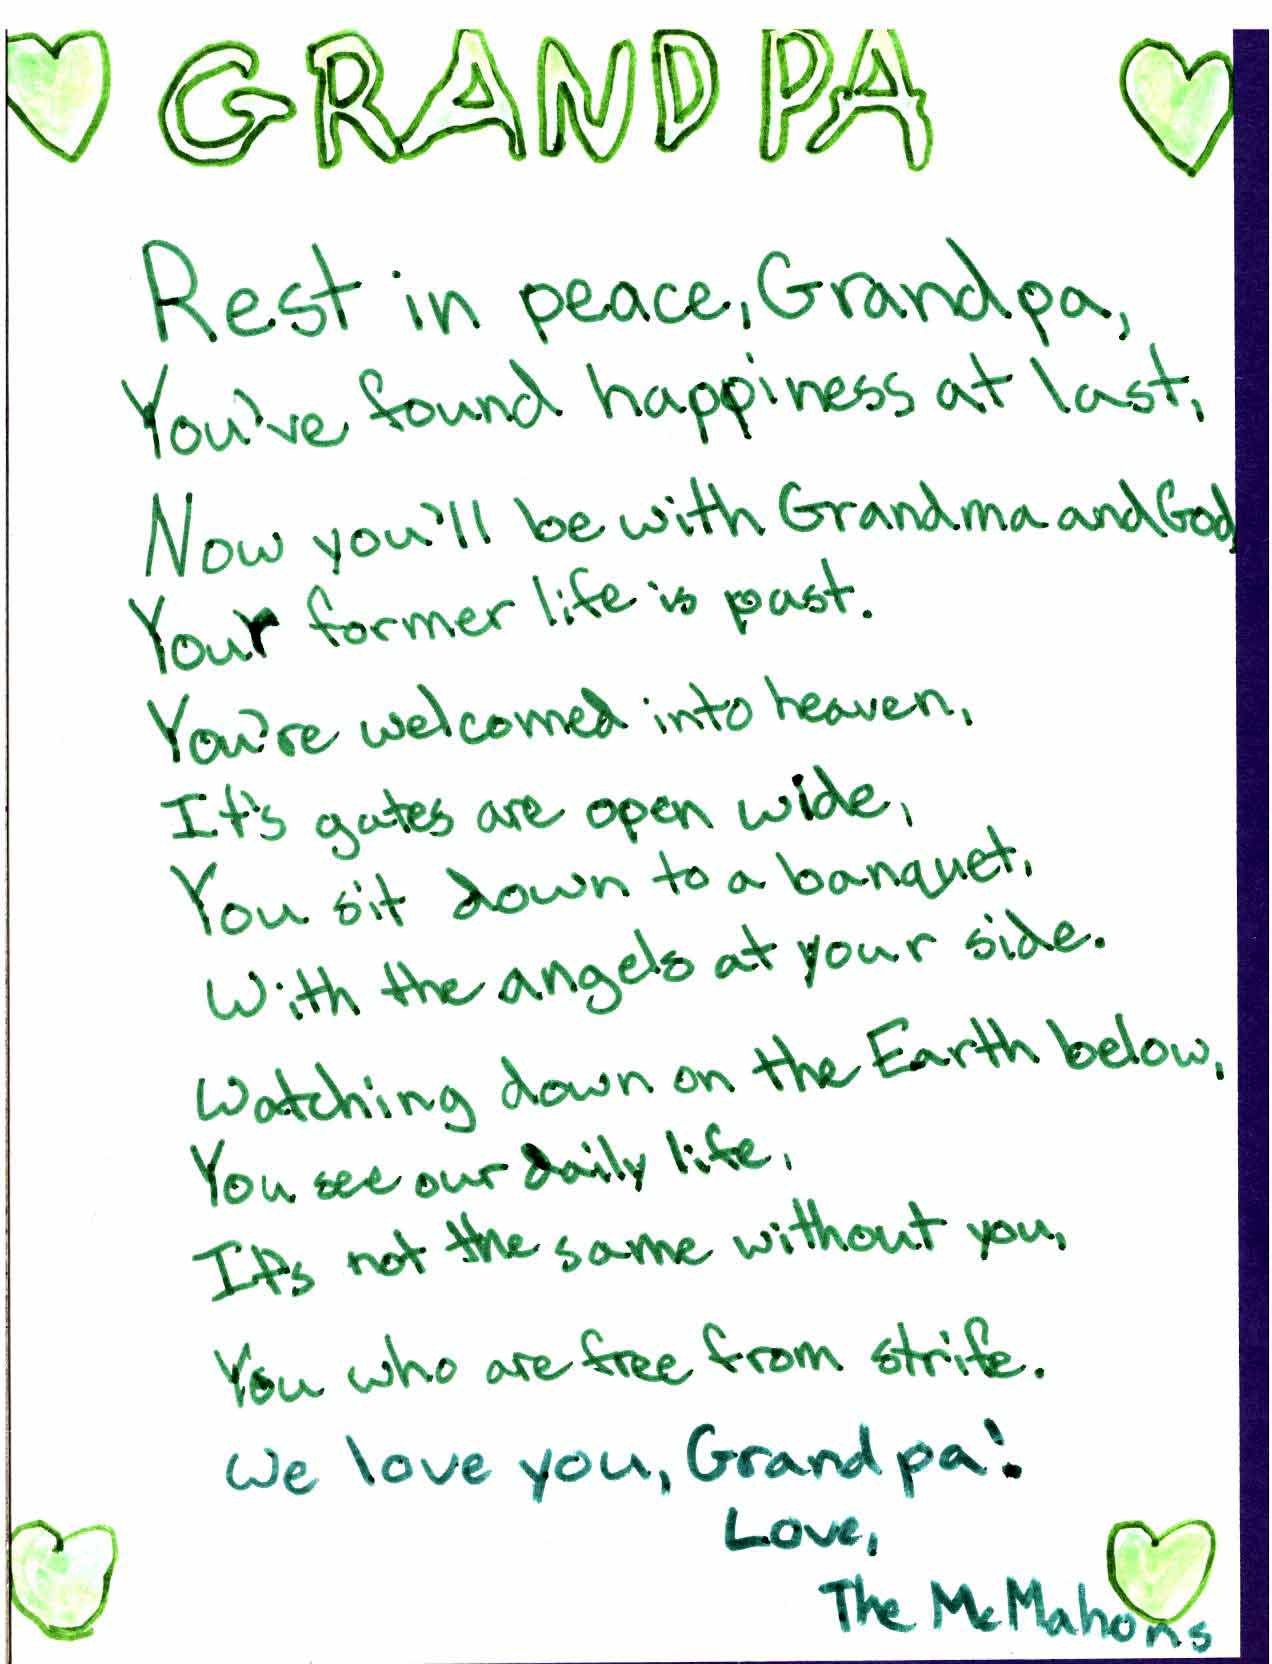 GRANDPA
Rest in peace, Grandpa,
You've found happiness at last,
Now you'll be with Grandma and God,
Your former life is past.
You're welcomed into heaven,
It's gates are open wide,
You sit down to a banquet,
With the angels at your side.
Watching down on the Earth below,
You see our daily life,
It's not the same without you,
You who are free from strife.
We love you, Grandpa!
Love,
The McMahons